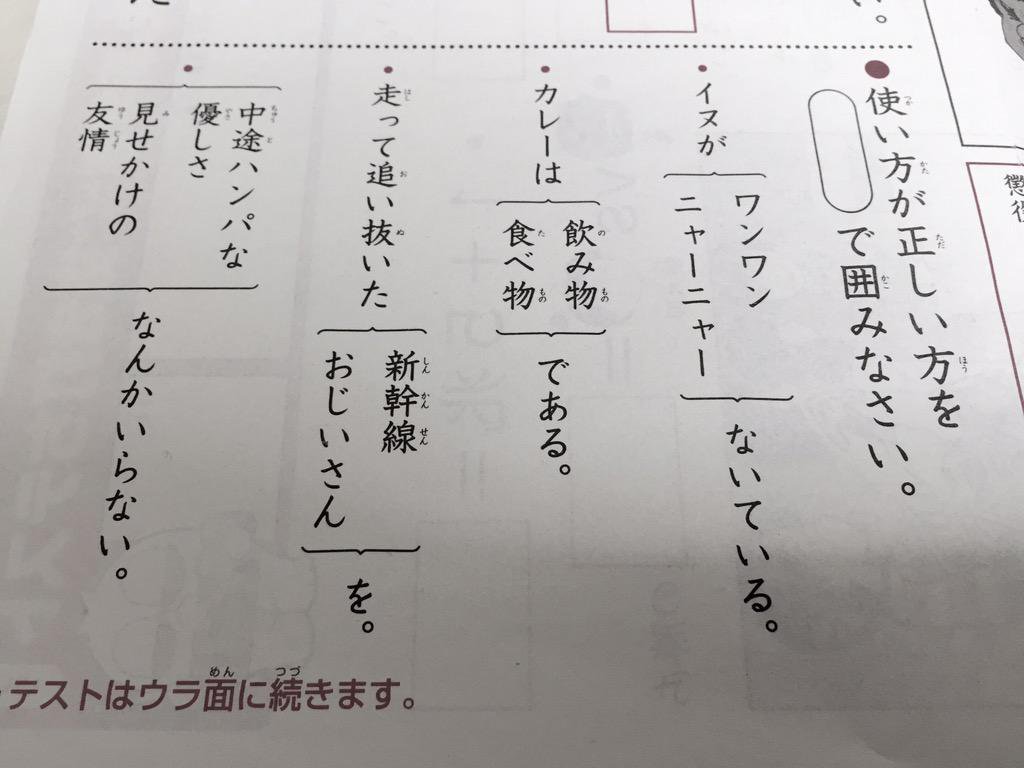 た
い。
懲役
●使い方が正しい方を
で囲みなさい。
・イヌが
ワンワン
ニャーニャー
ないている。
・カレーは
飲み物
食べ物
である。
・走って追い抜いた
新幹線
おじいさん
を。
・中途ハンパな
優しさ
見せかけの
友情
なんかいらない。
テストはウラ面に続きます。